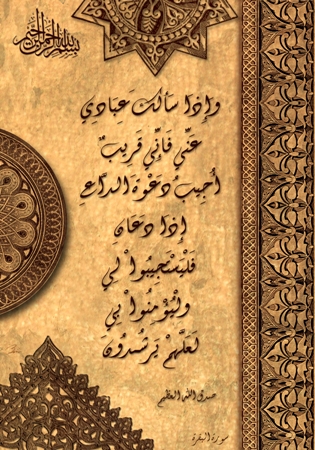 بسم الله الرحمن الرحيم
وَإِذَا سَأَلَكَ عِبَادِي
عَنِّي فَإِنِّي قَرِيبٌ
أُجِيبُ دَعْوَةَ الدَّاعِ
إِذَا دَعَانِ
فَلْيَسْتَجِيبُوا لِي
وَلْيُؤْمِنُوا بِي
لَعَلَّهُمْ يَرْشُدُونَ
صدق الله العظيم
سورة البقرة